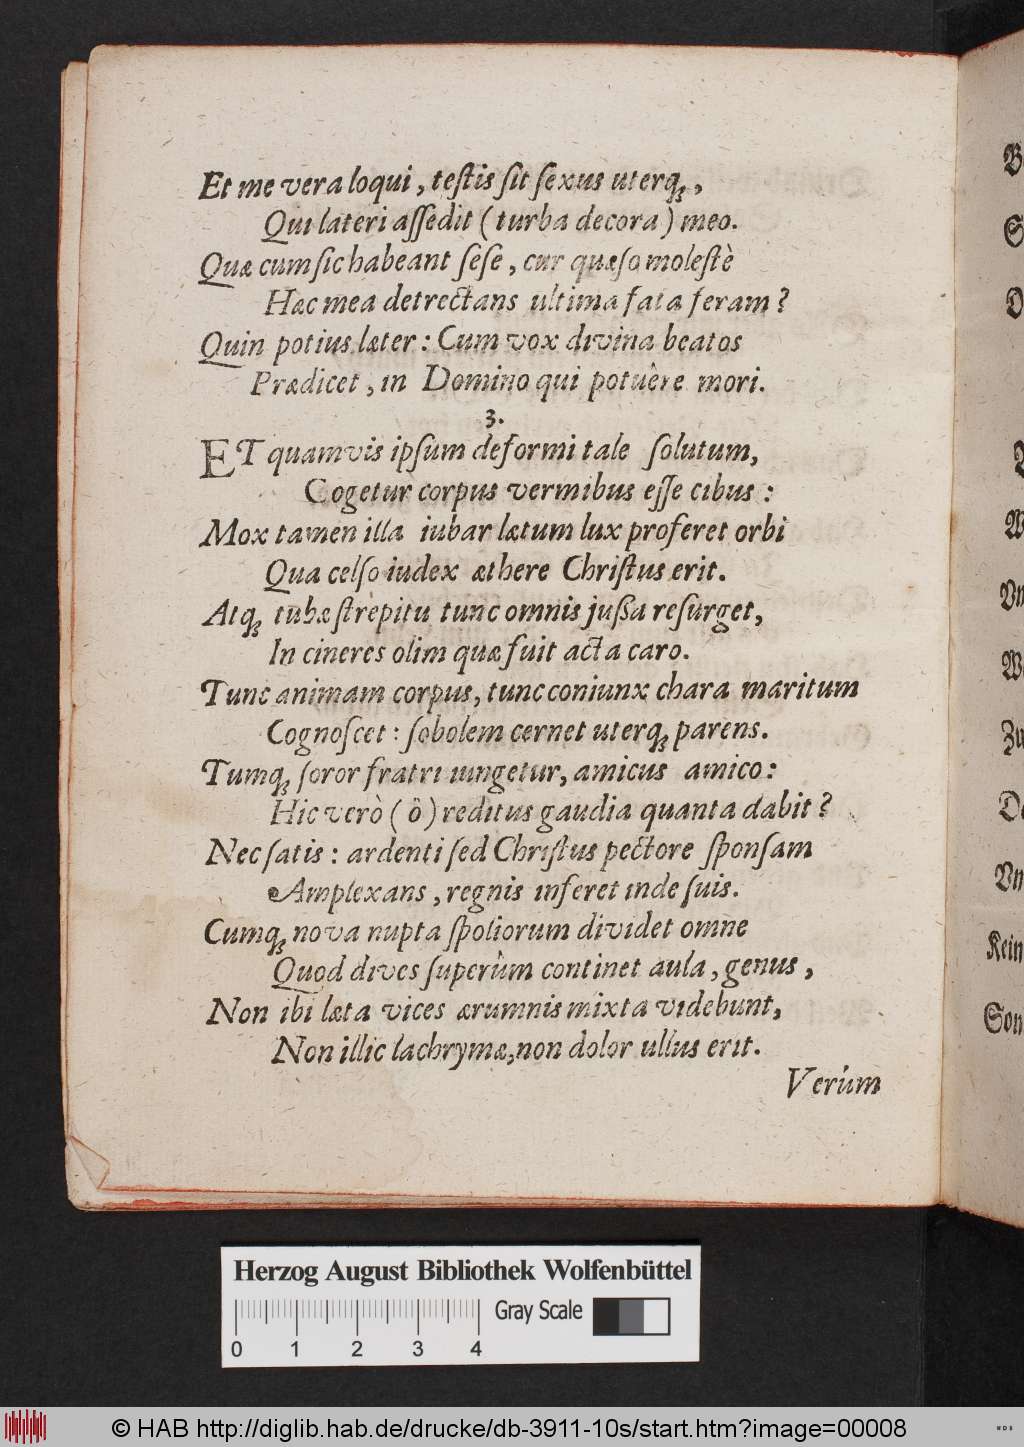 Et me vera loqui, teſtis ſit ſexus uterq́ꝫ,
Qui lateri aſſedit (turba decora) meo.
Quæ cum ſic habeant ſeſe, cur quæſo moleſtè
Hæc mea detrectans ultima fata feram?
Quin potius læter: Cum vox divina beatos
Prædicet, in Domino qui potuêre mori.
3.
ET quamvis ipſum deformi tale ſolutum,
Cogetur corpus vermibus eſſe cibus:
Mox tamen illa iubar lætum lux proferet orbi
Qua celſo iudex æthere Chriſtus erit.
Atq́ꝫ tubæ ſtrepitu tunc omnis juſſa reſurget,
In cineres olim quæ fuit acta caro.
Tunc animam corpus, tunc coniunx chara maritum
Cognoſcet: ſobolem cernet uterq́ꝫ parens.
Tumq́ꝫ ſoror fratri iungetur, amicus amico:
Hic verò (ô) reditus gaudia quanta dabit?
Nec ſatis: ardenti ſed Chriſtus pectore ſponſam
Amplexans, regnis inferet inde ſuis.
Cumq́ꝫ nova nupta ſpoliorum dividet omne
Quod dives ſuperûm continet aula, genus,
Non ibi læta vices ærumnis mixta videbunt,
Non illic lachrymæ, non dolor ullus erit.
Verùm
B
S
W
Vn
We
Zu
De
Vn
Kein
Son
Herzog August Bibliothek Wolfenbüttel
Gray Scale
0 1 2 3 4
© HAB http://diglib.hab.de/drucke/db-3911-10s/start.htm?image=00008